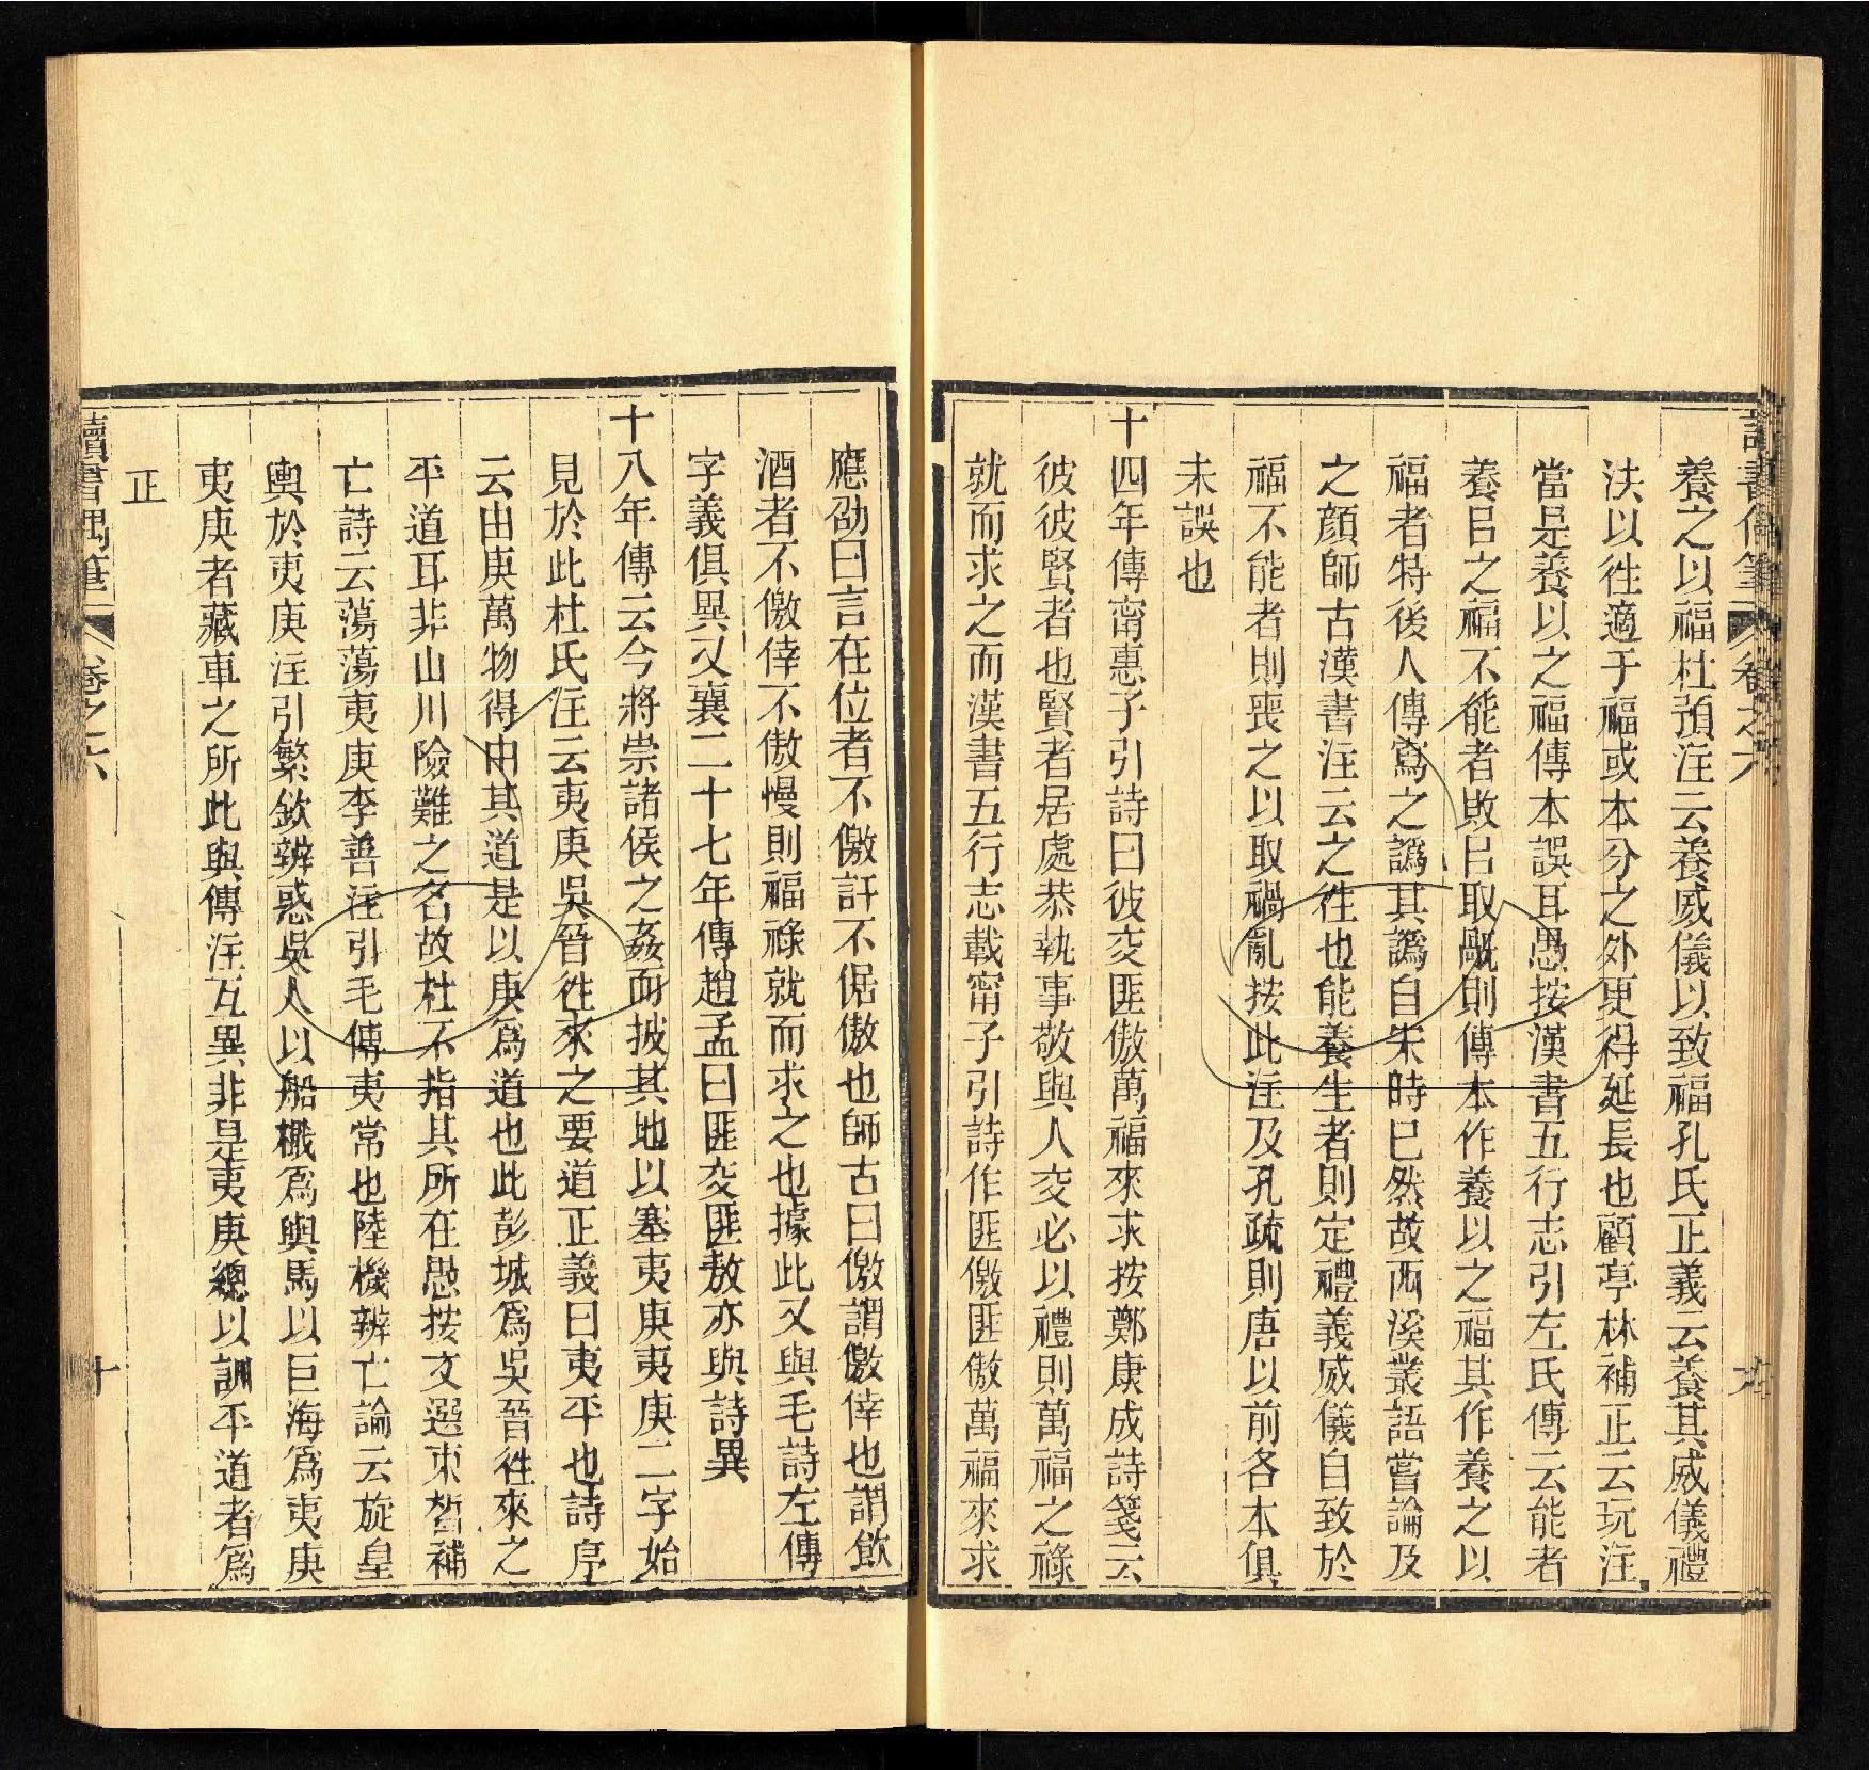 讀書偶筆 卷之六
養之以福杜預注云養威儀以致福孔氏正義云養其威儀禮
法以徃適于福或本分之外更得延長也顧亭林補正云玩注
當是養以之福傳本誤耳愚按漢書五行志引左氏傳云能者
養㠯之福不能者敗㠯取旤則傳本作養以之福其作養之以
福者特後人傳寫之譌其譌自宋時巳然故西溪叢語嘗論及
之顏師古漢書注云之徃也能養生者則定禮義威儀自致於
福不能者則喪之以取禍亂按此注及孔疏則唐以前各本俱
未誤也
十四年傳甯惠子引詩曰彼交匪傲萬福來求按鄭康成詩箋云
彼彼賢者也賢者居處恭執事敬與人交必以禮則萬福之祿
就而求之而漢書五行志載甯子引詩作匪儌匪傲萬福來求
應劭曰言在位者不儌訐不倨傲也師古曰儌謂儌倖也謂飲
酒者不儌倖不傲慢則福祿就而求之也據此又與毛詩左傳
字義俱異又襄二十七年傳趙孟曰匪交匪敖亦與詩異
十八年傳云今將崇諸侯之姦而披其地以塞夷庚夷庚二字始
見於此杜氏注云夷庚吳晉徃來之要道正義曰夷平也詩序
云由庚萬物得由其道是以庚爲道也此彭城爲吳晉徃來之
平道耳非山川險難之名故杜不指其所在愚按文選束晳補
亡詩云蕩蕩夷庚李善注引毛傳夷常也陸機辨亡論云旋皇
輿於夷庚注引繁欽辨惑吳人以船檝爲輿馬以巨海爲夷庚
夷庚者藏車之所此與傳注互異非是夷庚總以訓平道者爲
正
讀書偶筆 卷之六 十